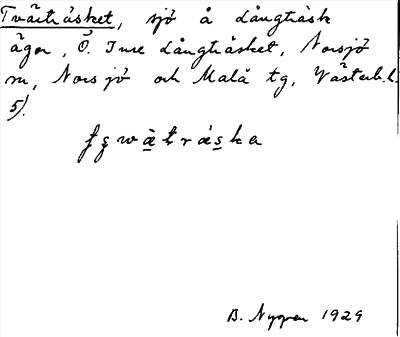 Tvärträsket, sjö å Långträsk
ägor, Ö. Inre Långträsket, Norsjö
sn, Norsjö och Malå tg, Västerb.l.
5).
B. Nygren 1929